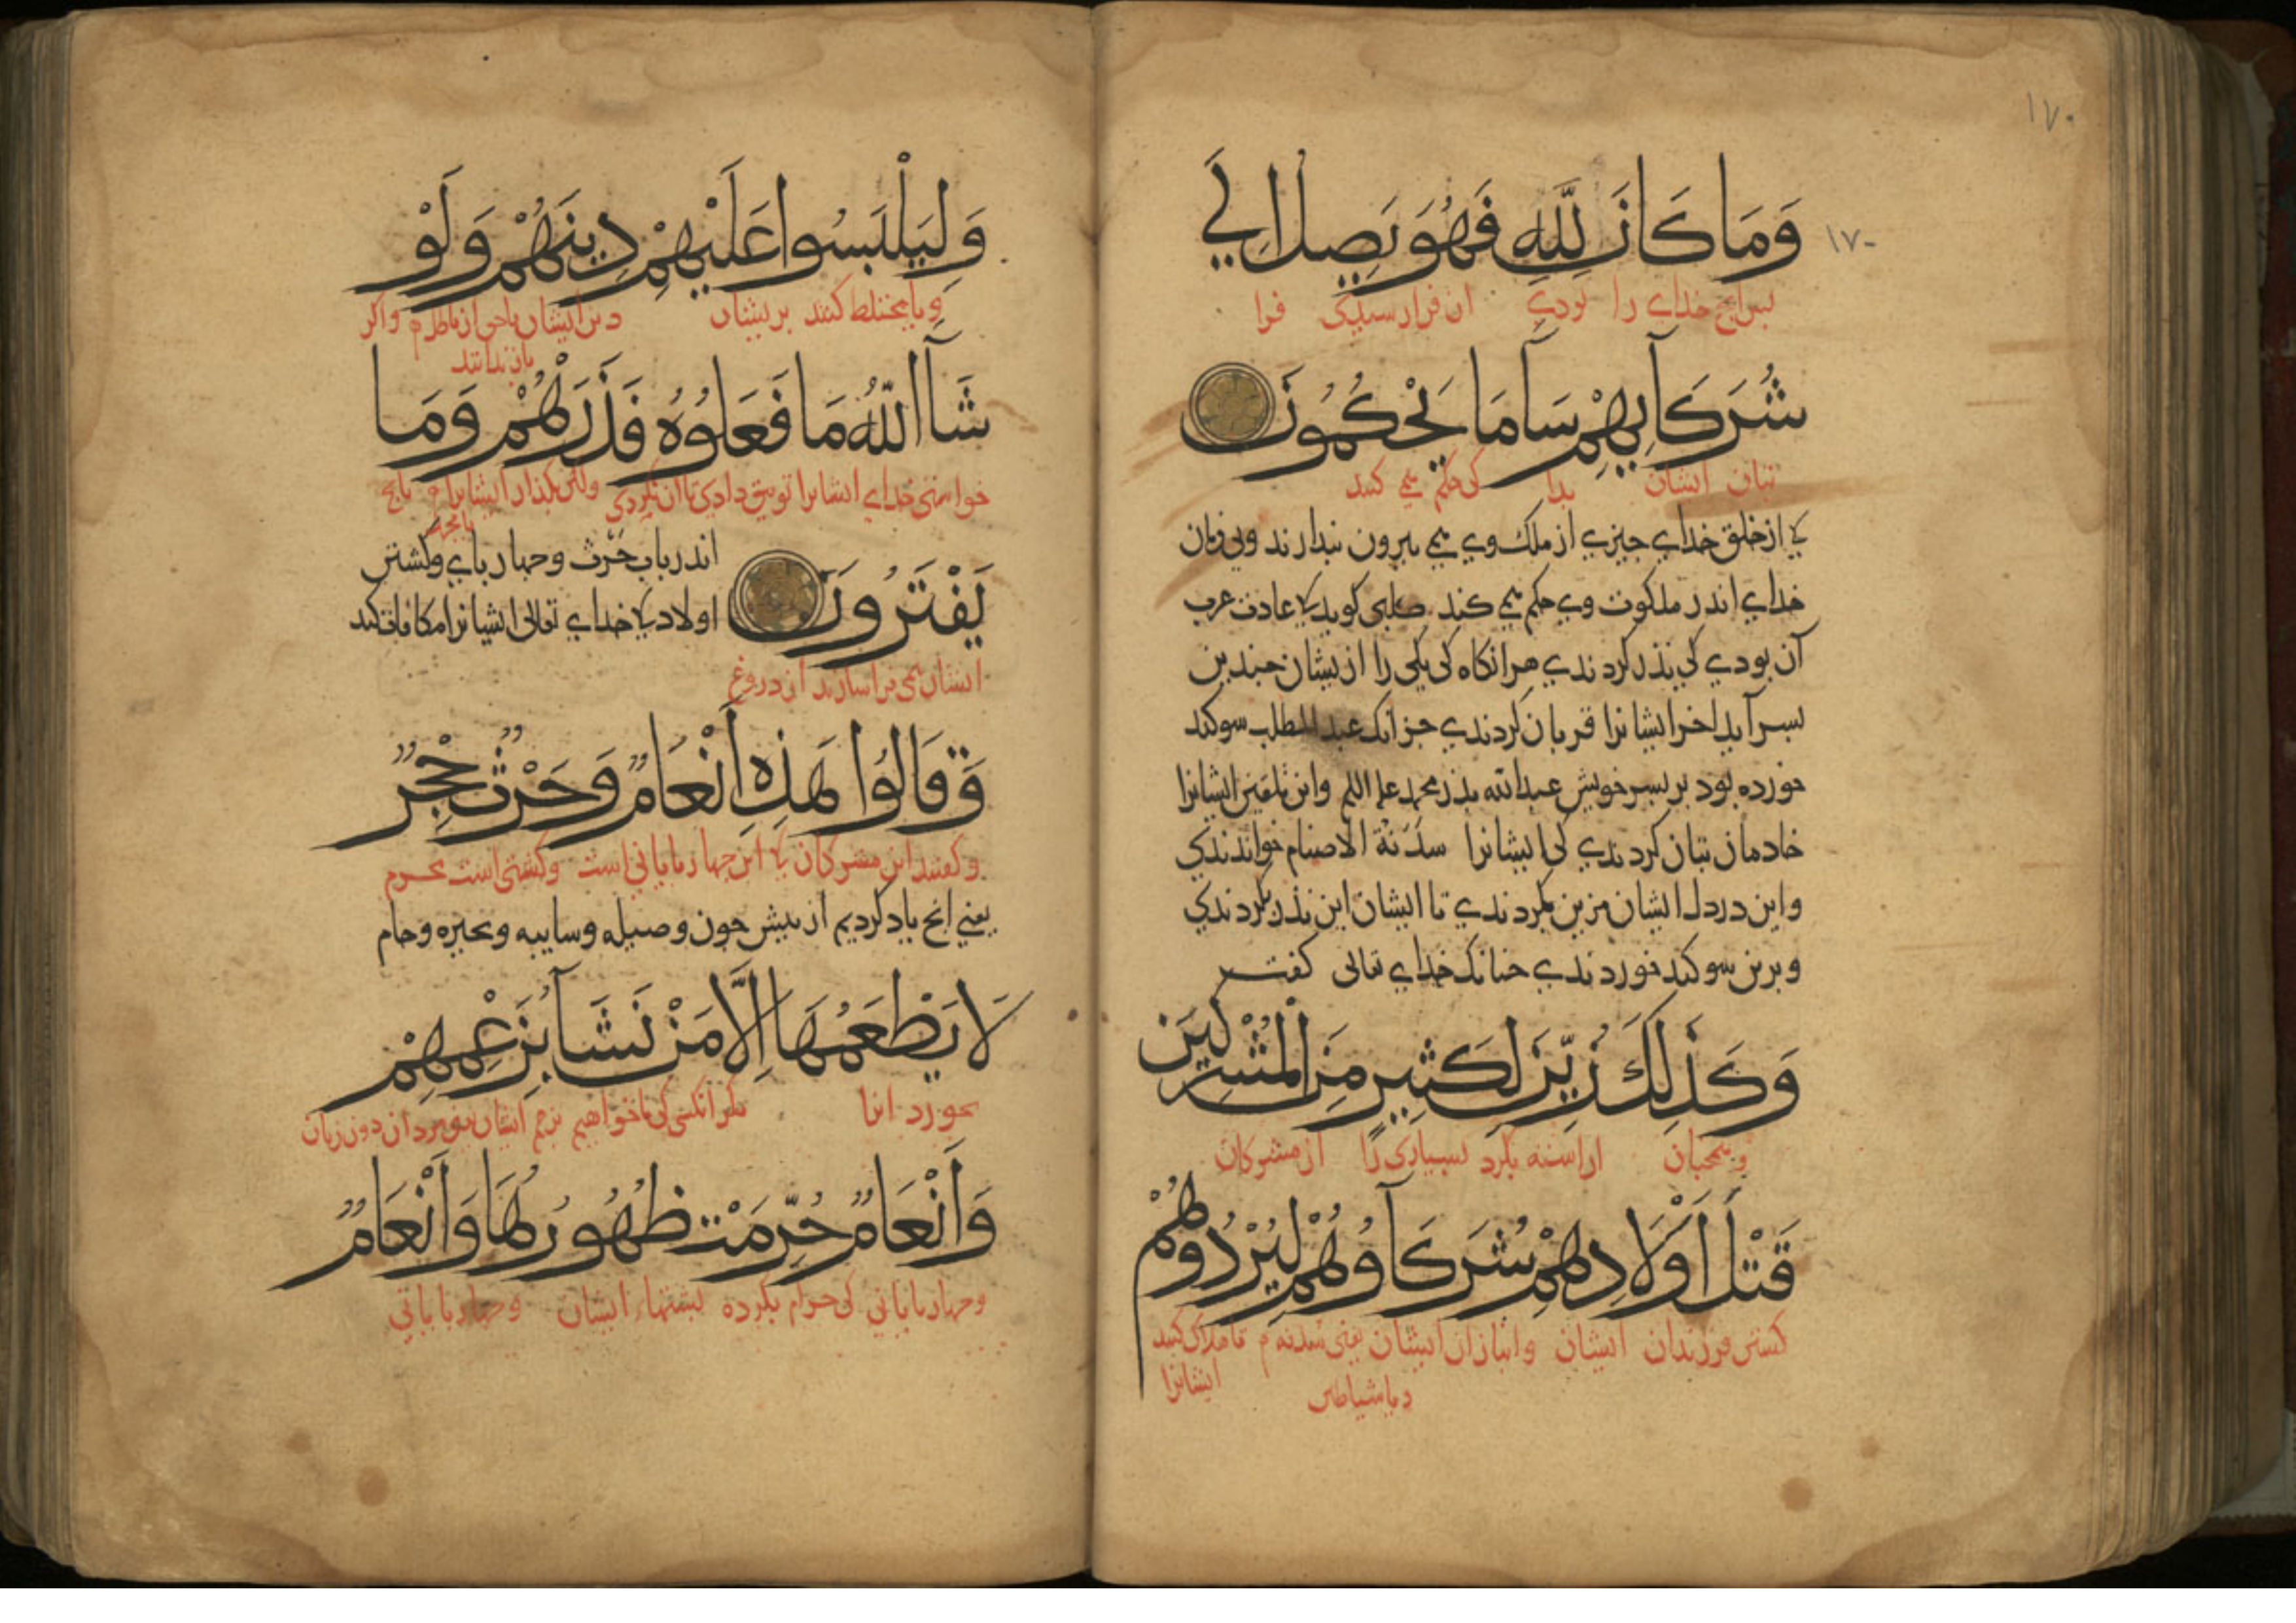 ١٧٠
١٧٠
وَمَا كَانَ لِلَّهِ فَهُوَ يَصِلُ اِلَي
خداي را بودي ان فرا رسيدي فرا
شُرَكَآيِهِمْ سَآ مَا يَحْكُمُونَ
بتان ايشان بدا كي حكم مي كنند
از خلق خداي چيزي از ملك وي مي بيرون نبدارند وبي فرمان
خداي اندر ملكوت وي حكم مي كنند كلبي كويد عادت عرب
آن بودي كي نذر كردندي هر انكاه كي يكي را از يشان چندين
بسر آيد اخر ايشانرا قربان كردندي جز انك عبد المطلب سوكند
خورده بود بر بسر خويش عبدالله بذر محمد عليه السلم واين تلقين ايشانرا
خادمان بتان كردندي كي ايشانرا سَدَنَة الاصنام خواندندي
واين در دل ايشان مزين بكردندي تا ايشان اين نذر بكردندي
وبرين سوكند خوردندي چنانك خداي تعالى كفت
وَكَذَلِكَ زُيِّنَ لِكَثِيرٍ مِنَ الْمُشْرِكِينَ
وهمچنان اراسته بكرد بسياري را از مشركان
قَتْلَ اَوْلَادِهِمْ شُرَكَآوُهُمْ لِيُرْدُوهُمْ
كشتن فرزندان ايشان وانبازان ايشان يعني سدنه تا هلاك كنند
ديا شياطين ايشانرا
وَلِيَلْبَسُوا عَلَيْهِمْ دِينَهُمْ وَلَوْ
وتا مختلط كنند بريشان دين ايشان تا حق از باطل واكر
باز ندانند
شَآ اللّٰهُ مَا فَعَلُوهُ فَذَرْهُمْ وَمَا
خواستي خداي ايشانرا توفيق دادي تا ان نكردي ولكن بكذار ايشانرا
يَفْتَرُونَ
اندر باب حَرْث وچهارباي وكشتن
اولاد خداي تعالى ايشانرا مكافات كند
ايشان مي فراسازند از دروغ
وَقَالُوا هَذِهِ اَنْعَامٌ وَحَرْثٌ حِجْرٌ
وكفتند اين مشركان اين چهارباياني است وكشتي است محرم
يعني انچ ياد كرديم از پيش چون وصيله وسايبه وبحيره وحام
لَا يَطْعَمُهَا اِلَّا مَنْ نَشَآ بِزَعْمِهِمْ
نخورد انرا مكر انكس كي ما خواهيم بزعم ايشان مردان دون زنان
وَاَنْعَامٌ حُرِّمَتْ ظُهُورُهَا وَاَنْعَامٌ
وچهارباياني كي حرام بكرده بشتهاء ايشان وچهارباياني